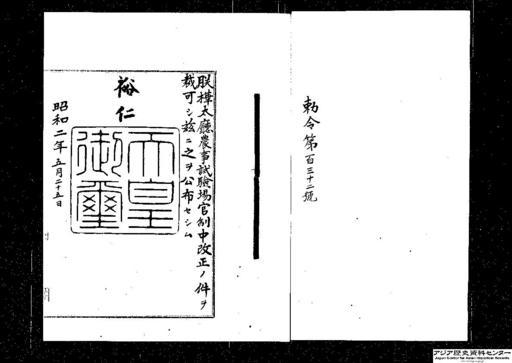 勅令第百三十二號
朕樺太廳農事試驗場官制中改正ノ件ヲ
裁可シ玆ニ之ヲ公布セシム
裕仁
天皇
御璽
昭和二年五月二十五日
アジア歴史資料センター
Japan Center for Asian Historical Records